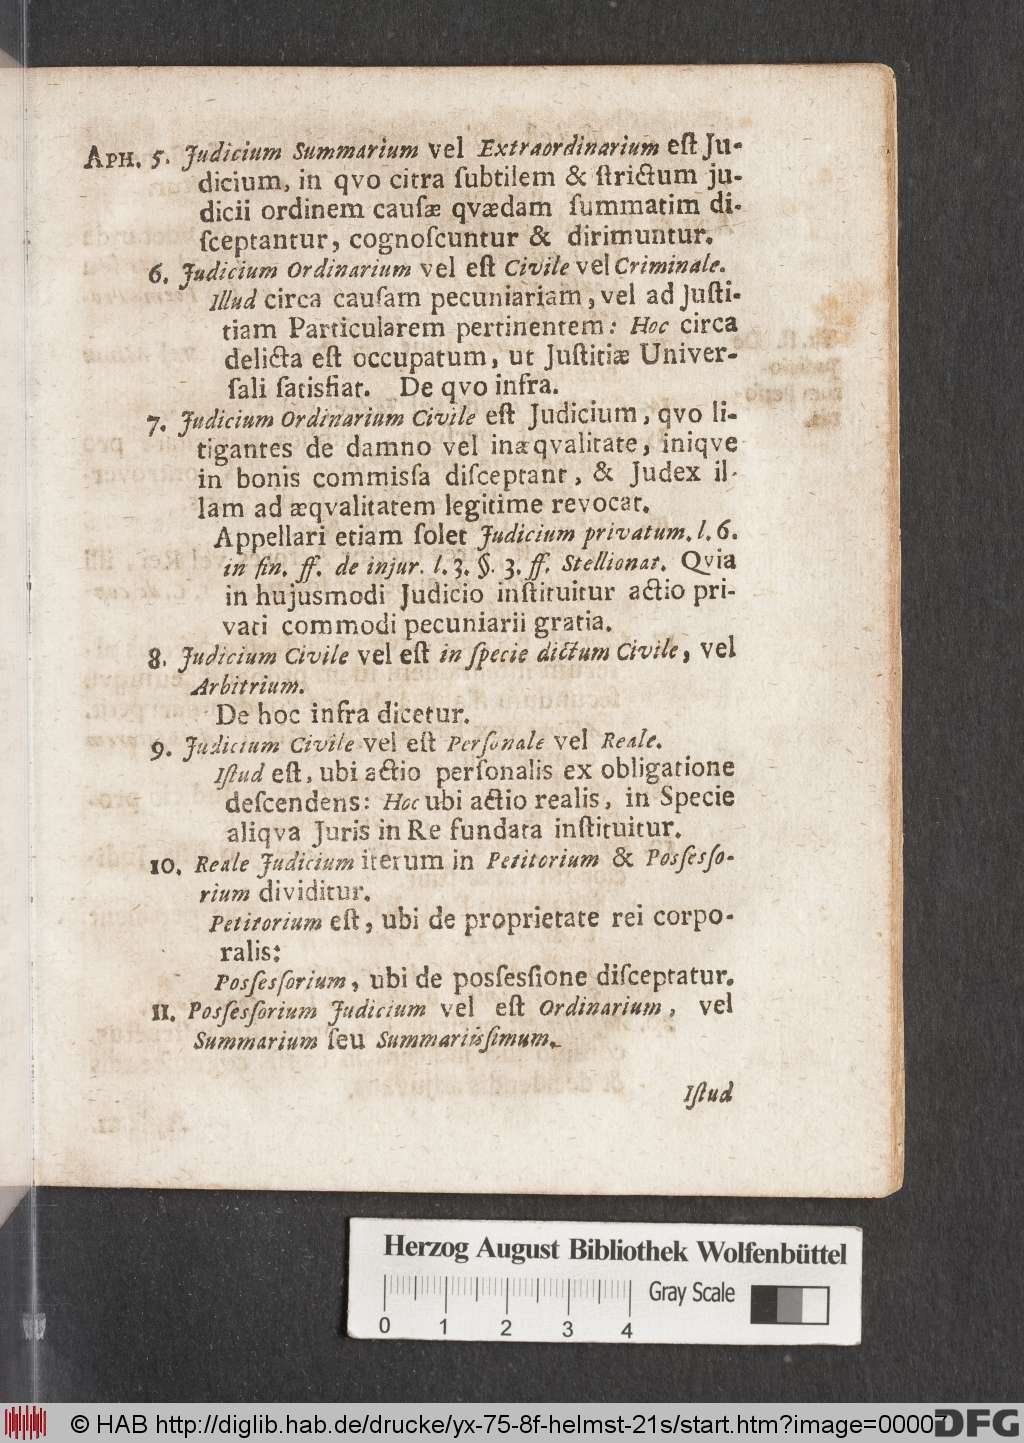 APH. 5. Judicium Summarium vel Extraordinarium eſt Ju-
dicium, in qvo citra ſubtilem & ſtrictum ju-
dicii ordinem cauſæ qvædam ſummatim di-
ſceptantur, cognoſcuntur & dirimuntur.
6. Judicium Ordinarium vel eſt Civile vel Criminale.
Illud circa cauſam pecuniariam, vel ad Juſti-
tiam Particularem pertinentem: Hoc circa
delicta eſt occupatum, ut Juſtitiæ Univer-
ſali ſatisfiat. De qvo infra.
7. Judicium Ordinarium Civile eſt Judicium, qvo li-
tigantes de damno vel inæqvalitate, iniqve
in bonis commiſſa diſceptant, & Judex il-
lam ad æqvalitatem legitime revocat.
Appellari etiam ſolet Judicium privatum. l. 6.
in fin. ff. de injur. l. 3. §. 3. ff. Stellionat. Qvia
in hujusmodi Judicio inſtituitur actio pri-
vati commodi pecuniarii gratia.
8. Judicium Civile vel eſt in ſpecie dictum Civile, vel
Arbitrium.
De hoc infra dicetur.
9. Judicium Civile vel eſt Perſonale vel Reale.
Iſtud eſt, ubi actio perſonalis ex obligatione
deſcendens: Hoc ubi actio realis, in Specie
aliqva Juris in Re fundata inſtituitur.
10. Reale Judicium iterum in Petitorium & Posſesſo-
rium dividitur.
Petitorium eſt, ubi de proprietate rei corpo-
ralis:
Posſesſorium, ubi de posſesſione diſceptatur.
11. Posſesſorium Judicium vel eſt Ordinarium, vel
Summarium ſeu Summariisſimum.
Iſtud
Herzog August Bibliothek Wolfenbüttel
Gray Scale
0 1 2 3 4
© HAB http://diglib.hab.de/drucke/yx-75-8f-helmst-21s/start.htm?image=00007
DFG